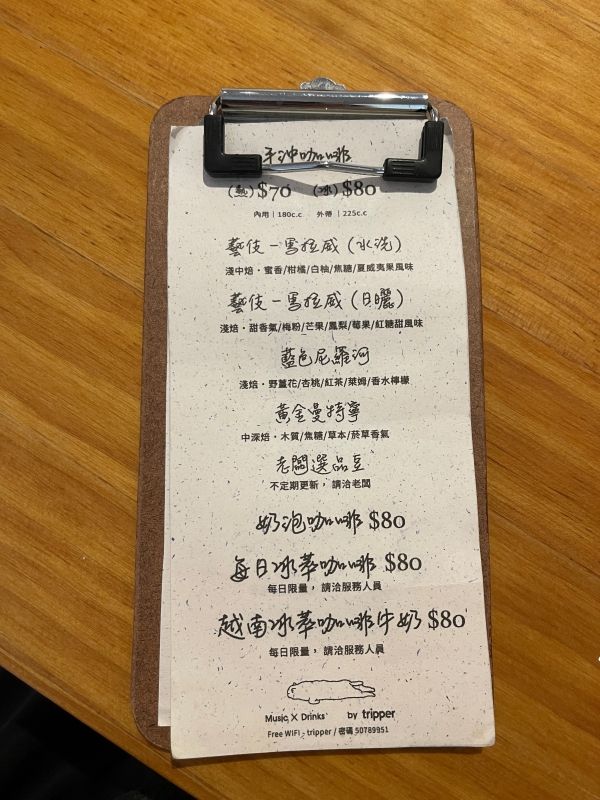 手沖咖啡
(熱)$70 (冰)$80
內用｜180c.c 外帶｜225c.c
藝伎－馬拉威(水洗)
淺中焙・蜜香/柑橘/白柚/焦糖/夏威夷果風味
藝伎－馬拉威(日曬)
淺焙・甜香氣/梅粉/芒果/鳳梨/莓果/紅糖甜風味
藍色尼羅河
淺焙・野薑花/杏桃/紅茶/萊姆/香水檸檬
黃金曼特寧
中深焙・木質/焦糖/草本/菸草香氣
老闆選品豆
不定期更新，請洽老闆
奶泡咖啡 $80
每日冰萃咖啡 $80
每日限量，請洽服務人員
越南冰萃咖啡牛奶 $80
每日限量，請洽服務人員
Music X Drinks by tripper
Free WiFi - tripper / 密碼 50789951